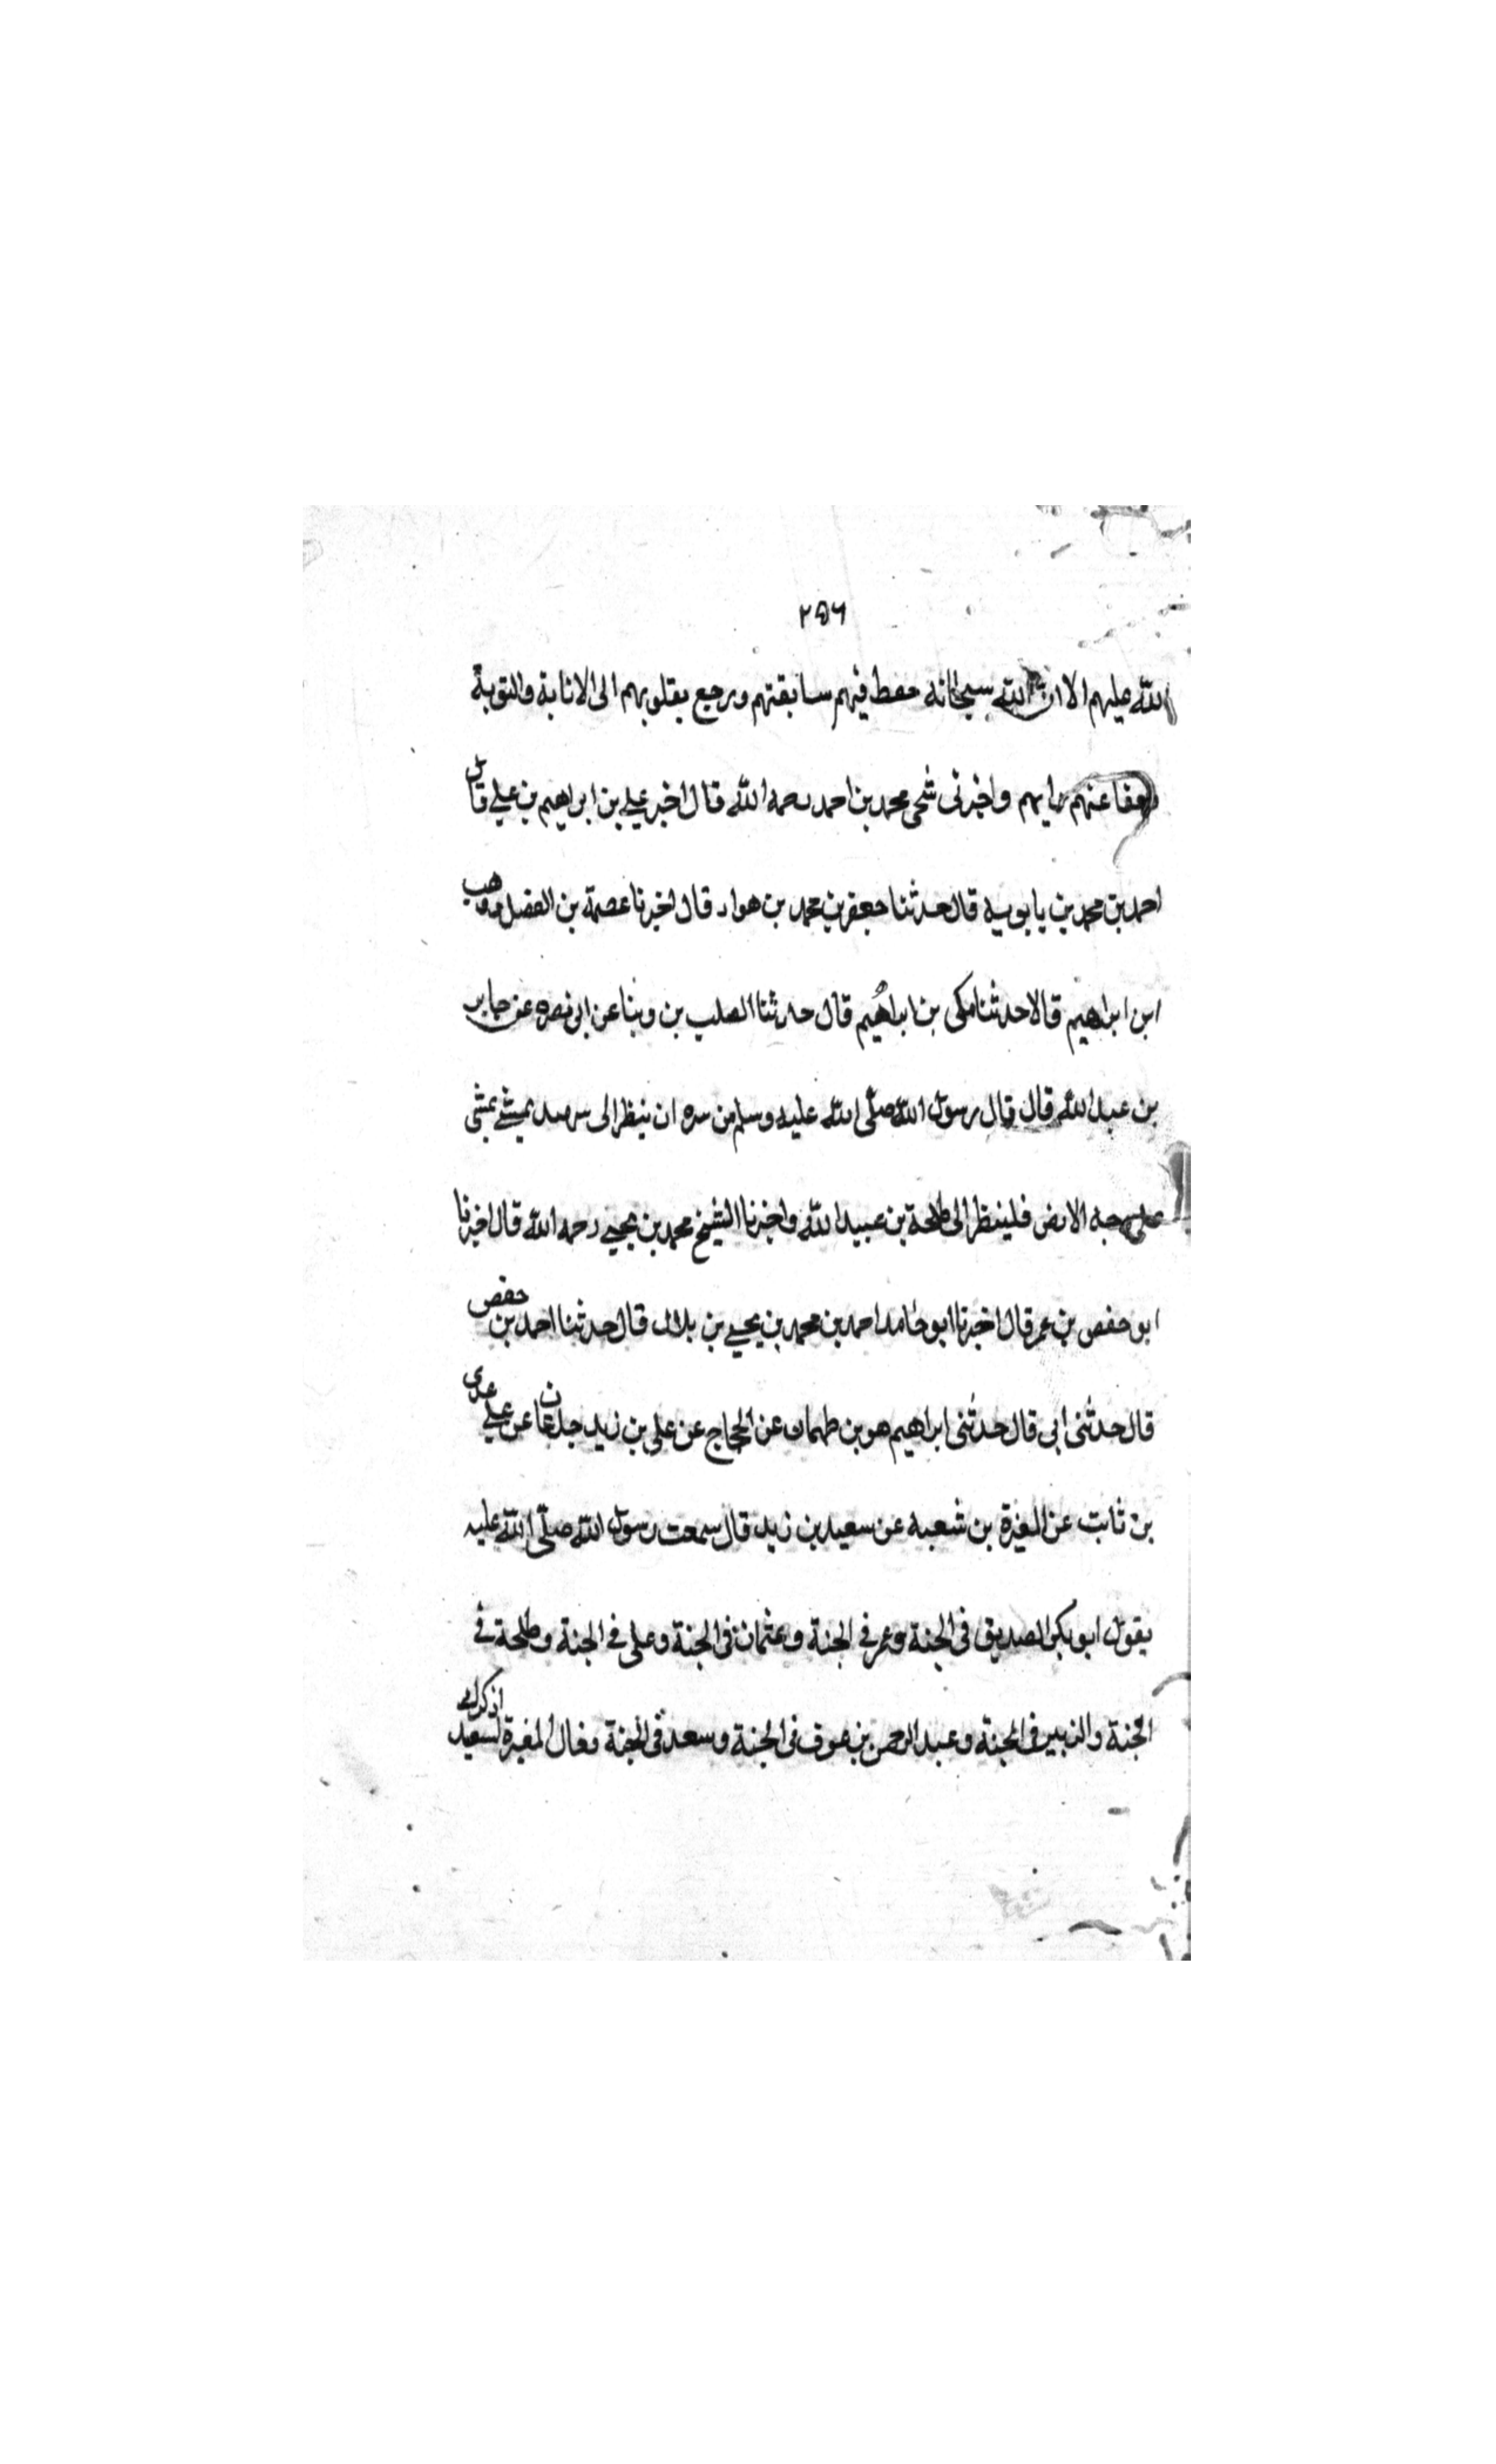 ٢٥٦
الله عليهم الا ان الله سبحانه حفظ فيهم سابقتهم ورجع بقلوبهم الى الانابة والتوبة
وعفا عنهم واخبرنى شخى محمد بن احمد رحمه الله قال اخبر على بن ابراهيم بن على قال
احمد بن محمد بن يابويه قال حدثنا جعفر بن محمد بن هواد قال اخبرنا عصمة بن الفضل ووهب
ابن ابراهيم قالا حدثنا مكى بن ابراهيم قال حدثنا الصلب بن وبنا عن ابى نصره عن جابر
بن عبد الله قال قال رسول الله صلى الله عليه وسلم من سره ان ينظر الى يمشى
على وجه الارض فلينظر الى طلحة بن عبيد الله واخبرنا الشيخ محمد بن يحيى رحمه الله قال اخبرنا
ابو حفص بن عمر قال اخبرنا ابو حامد احمد بن محمد بن يحيى بن بلال قال حدثنا احمد بن حفص
قال حدثنى ابى قال حدثنى ابراهيم هو بن طهمان عن الحجاج عن على بن زيد جدعان عن عدى
بن ثابت عن المغيرة بن شعبه عن سعيد بن زيد قال سمعت رسول الله صلى الله عليه
يقول ابو بكر الصديق فى الجنة وعمر فى الجنة وعثمان فى الجنة وعلى فى الجنة وطلحة فى
الجنة والزبير فى الجنة وعبد الرحمن بن عوف فى الجنة وسعد فى الجنة فقال المغيرة لسعيد اذكرك